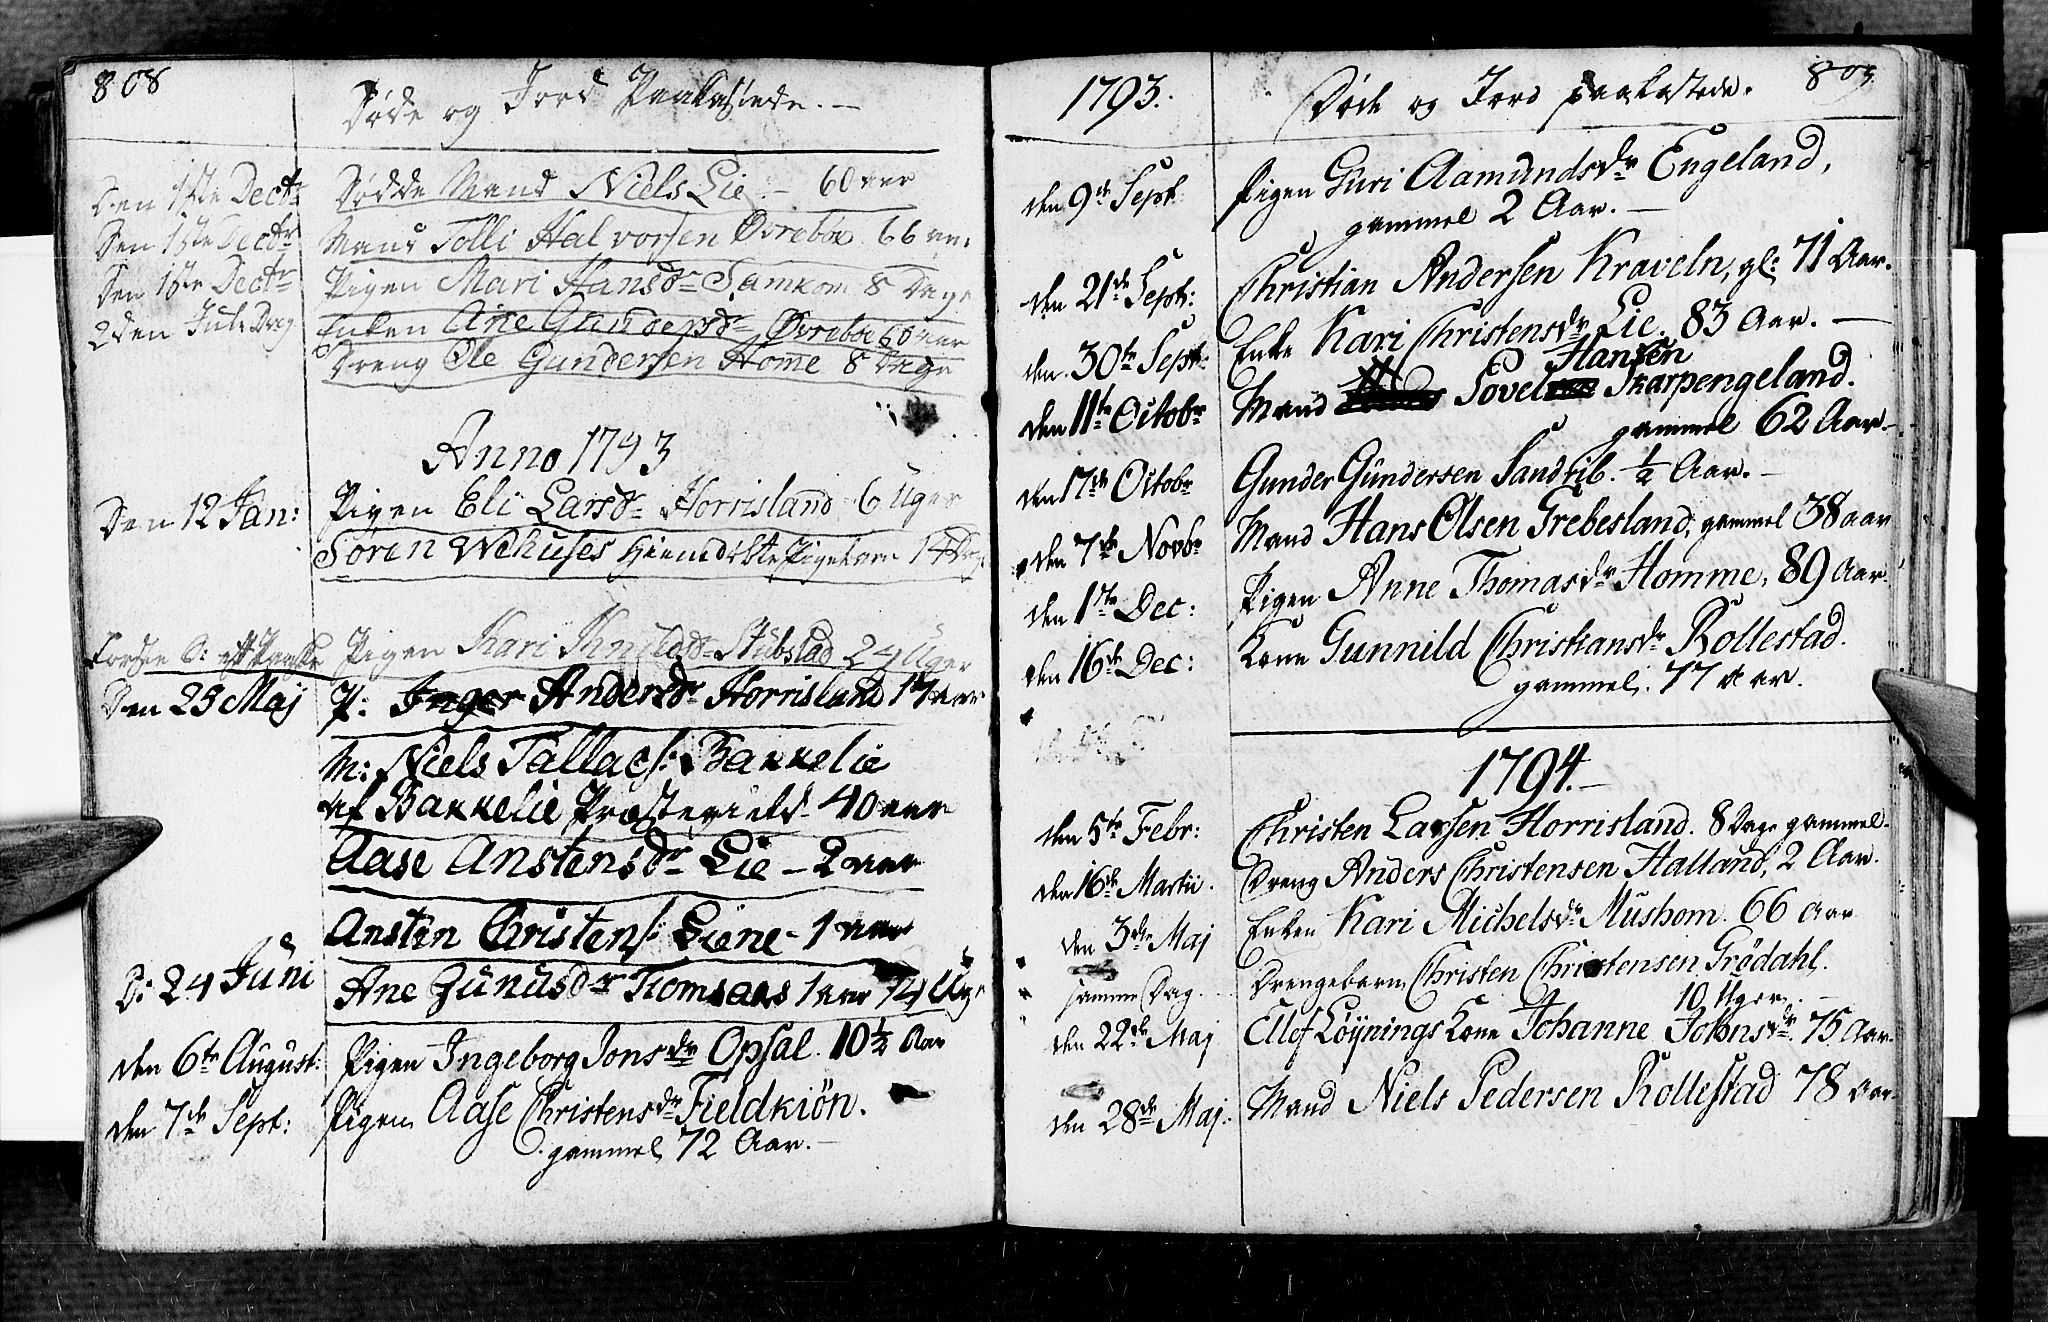 808
Døde og Jord Paakastede. —
Den 1ste Dectr
Døde Mand Niels Lie — 60 aar
Den 1ste Dectr
Mand Tolli Halvorsen Øvrebøe 66 aar
Den 1ste Dectr
Pigen Mari Hansdr Samkom 8 Dage
2den Jule Dag
Enken Ane Gundersdr Øvrebøe 60 aar
Dreng Ole Gundersen Home 8 Dage
Anno 1793
Den 12 Jan:
Pigen Eli Larsdr Horrisland 6 Uger
Sören Wehuses hiemdöbte Pigebarn 14 Dag
Pigen Kari Knudsdr Stubstad 24 Uger
Den 23 Maj
P: Inger Andersdr Horrisland 17 aar
M: Niels Tallacs: Bakkelie
af Bakkelie Præstegield 40 aar
Aase Anstensdr Lie — 2 aar
Ansten Christens: Liene — 1 aar
D: 24 Juni
Ane Zunusdr Komsaas 1 aar 14 Uge
den 6te August:
Pigen Ingeborg Jonsdr Opsal. 10½ Aar
den 7de Sept:
Pigen Aase Christensdr Fieldkiön.
gammel 72 Aar. —
1793.
Døde og Jord paakastede.
809
den 9de Sept
Pigen Guri Aamundsdr Engeland,
gammel 2 Aar. —
den 21de Sept:
Christian Andersen Kraveln, gl: 71 Aar.
den 30te Sept:
Enke Kari Christensdr Lie. 83 Aar. —
Hansen
den 11te Octobr
Mand Sovel Skarpengeland.
gammel 62 Aar.
den 17de Octobr
Gunder Gundersen Sandrib. ½ Aar. —
den 7de Novbr
Mand Hans Olsen Grebesland, gammel 38 aar
den 1ste Dec:
Pigen Anne Thomasdr Homme, 89 Aar.
den 16de Dec:
Kone Gunnild Christiansdr Rollestad.
gammel. 77 aar.
1794. —
den 5te Febr:
Christen Larsen Horrisland. 8 Dage gammel.
den 16de Martii.
Dreng Anders Christensen Halland, 2 Aar.
den 3die Maj
Enken Kari Michelsdr Mushom. 66 aar
samme Dag.
Drengebarn Christen Christensen Grödahl.
10 Uger. —
den 22de Maj
Ellef Löynings Kone Johanne Johnsdr. 75 Aar.
den 28de Maj.
Mand Niels Pedersen Rollestad 78 Aar.